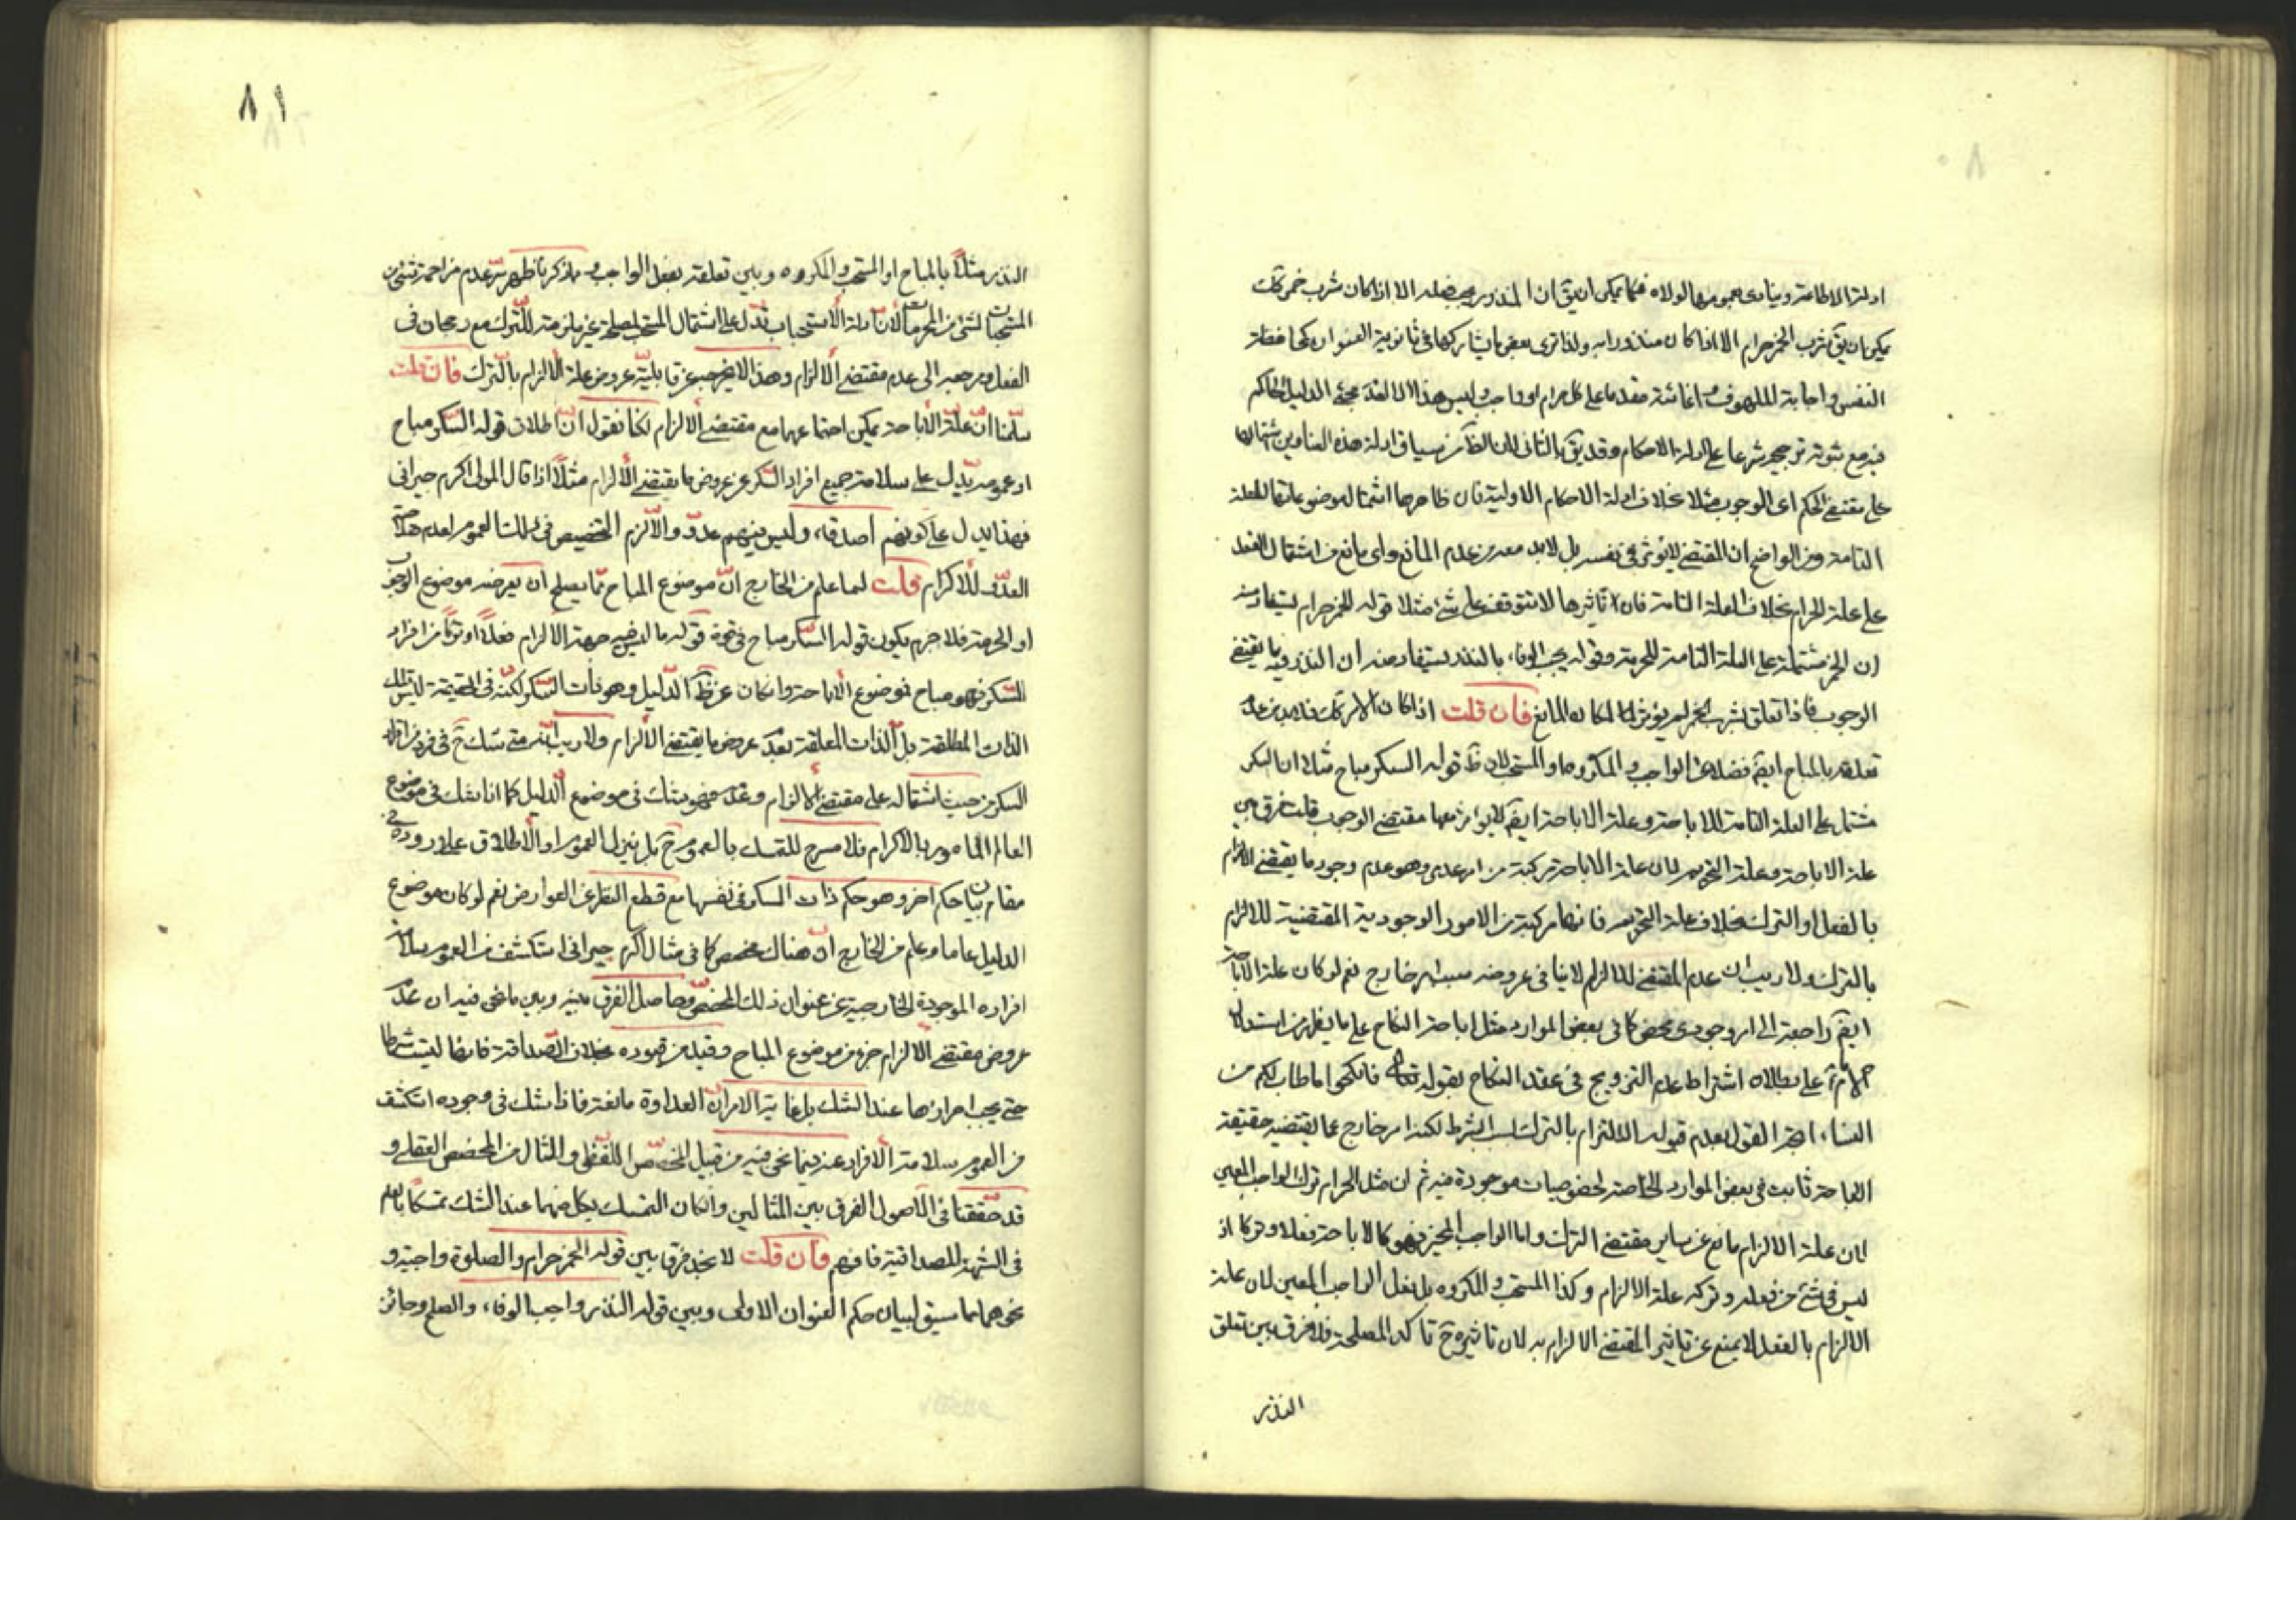 ادلة الاطاعة وينادى بعمومها لولاه فكما يمكن ان يق ان المنذور يجب فعله الا اذا كان شرب خمر كك
يمكن ان يق شرب الخمر حرام الا اذا كان منذورا به ولذا ترى بعض ما يشاركها فى ثانوية العنوان كحفظ
النفس واجابة الملهوف واغاثته مقدما على كل حرام او واجب وليس هذا الا لفقد مجئ الدليل الحاكم
فيه مع ثبوت ترجيحه شرعا على ادلة الاحكام وقد يق بالثانى لان الظ من سياق ادلة هذه العناوين اشتمالها
على مقتضى الحكم اى الوجوب مثلا بخلاف ادلة الاحكام الاولية فان ظاهرها اشتمال موضوعاتها للعلة
التامة ومن الواضح ان المقتضى لا يؤثر فى نفسه بل لابد معه من عدم المانع واى مانع من اشتمال الفعل
على علة الحرام بخلاف العلة التامة فان تاثيرها لا تتوقف على شئ مثلا قوله الخمر حرام يستفاد منه
ان الخمر مشتملة على العلة التامة للحرمة وقوله يجب الوفاء بالنذر يستفاد منه ان النذر فيه ما يقتضى
الوجوب فاذا تعلق بشرب الخمر لم يؤثر لمكان المانع فان قلت اذا كان الامر كك فلابد من عدم
تعلقه بالمباح ايضا فضلا عن الواجب والمكروه والمستحب لان ظ قوله السكر مباح مثلا ان السكر
مشتمل على العلة التامة للاباحة وعلة الاباحة ايضا لا يزاحمها مقتضى الوجوب قلت فرق بين
علة الاباحة وعلة التحريم لان علة الاباحة مركبة من امر عدمى وهو عدم وجود ما يقتضى الالزام
بالفعل او الترك بخلاف علة التحريم فانها مركبة من الامور الوجودية المقتضية للالزام
بالترك ولا ريب ان عدم المقتضى للالزام لا ينافى عروضه بسبب امر خارج نعم لو كان علة الاباحة
ايضا راجعة الى امر وجودى محض كما فى بعض الموارد مثل اباحة النكاح على ما يظهر من استدلال
الامام ع على بطلان اشتراط عدم التزويج فى عقد النكاح بقوله تعالى فانكحوا ما طاب لكم من
النساء اتجه القول بعدم قبوله الالتزام بالترك بسبب الشرط لكنه امر خارج عما يقتضيه حقيقة
الاباحة ثابت فى بعض الموارد الخاصة لخصوصيات موجودة فيه ثم ان مثل الحرام ترك الواجب المعين
لان علة الالزام مانع عن ساير مقتضى الترك واما الواجب المخير فهو كالاباحة فعلا وتركا اذ
ليس فى شئ من فعله وتركه علة الالزام وكذا المستحب والمكروه بل فعل الواجب المعين لان علة
الالزام بالفعل لا يمنع عن تاثير المقتضى الالزام به لان تاثيره ح تاكد المصلحة فلا فرق بين تعلق
النذر
٨١
النذر مثلا بالمباح او المستحب والمكروه وبين تعلقه بفعل الواجب ومما ذكرنا ظهر سر عدم مزاحمة شئ من
المستحبات لشئ من المحرمات لان ادلة الاستحباب تدل على اشتمال المستحب لمصلحة غير ملزمة للترك مع رجحان فى
الفعل ومرجعه الى عدم مقتضى الالزام وهذا لا يخرجه عن قابلية عروض علة الالزام بالترك فان قلت
سلمنا ان علة الاباحة يمكن اجتماعها مع مقتضى الالزام لكنا نقول ان اطلاق قوله السكر مباح
او عمومه يدل على سلامة جميع افراد السكر عن عروض ما يقتضى الالزام مثلا اذا قال المولى اكرم جيرانى
فهذا يدل على كونهم اصدقاء وليس بينهم عدو والا لزم التخصيص فى ذلك العموم لعدم صلاحية
العدو للاكرام قلت لما علم من الخارج ان موضوع المباح مما يصلح ان يعرضه موضوع الوجوب
او الحرمة فلا جرم يكون قوله السكر مباح فى قوة قوله ما ليس فيه جهة الالزام فعلا او تركا من افراد
السكر فهو مباح فموضوع الاباحة وان كان عن ظ الدليل وهو ذات السكر لكنه فى الحقيقة ليس تلك
الذات المطلقة بل الذات المعلقة بعدم عروض ما يقتضى الالزام ولا ريب انه متى شك ح فى فرد من افراد
السكر من حيث اشتماله على مقتضى الالزام وعدمه فهو شك فى موضوع الدليل كما انا نشك فى موضوع
العالم المامور بالاكرام فلا مسرح للتمسك بالعموم ح بل ينزل العموم او الاطلاق على وروده فى
مقام بيان حكم اخر وهو حكم ذات السكر فى نفسها مع قطع النظر عن العوارض نعم لو كان موضوع
الدليل عاما وعلم من الخارج ان هناك مخصص كما فى مثال اكرم جيرانى استكشف من العموم سلامة
افراده الموجودة الخارجية عن عنوان ذلك المخصص وحاصل الفرق بينه وبين ما نحن فيه ان عدم
عروض مقتضى الالزام جزء من موضوع المباح وقيد من قيوده بخلاف الصداقة فانها ليست شرطا
حتى يجب احرازها عند الشك بل غاية الامر ان العداوة مانعة فاذا شك فى وجوده استكشف
من العموم سلامة الافراد عنه فما نحن فيه من قبيل المخصص اللفظى والمثال من المخصص العقلى و
قد حققنا فى الاصول الفرق بين المثالين وان كان التمسك بكل منهما عند الشك تمسكا بالعام
فى الشبهة المصداقية فافهم فان قلت لا نجد فرقا بين قوله الخمر حرام والصلوة واجبة و
نحوهما مما سيق لبيان حكم العنوان الاولى وبين قوله النذر واجب الوفاء والصلح جائز